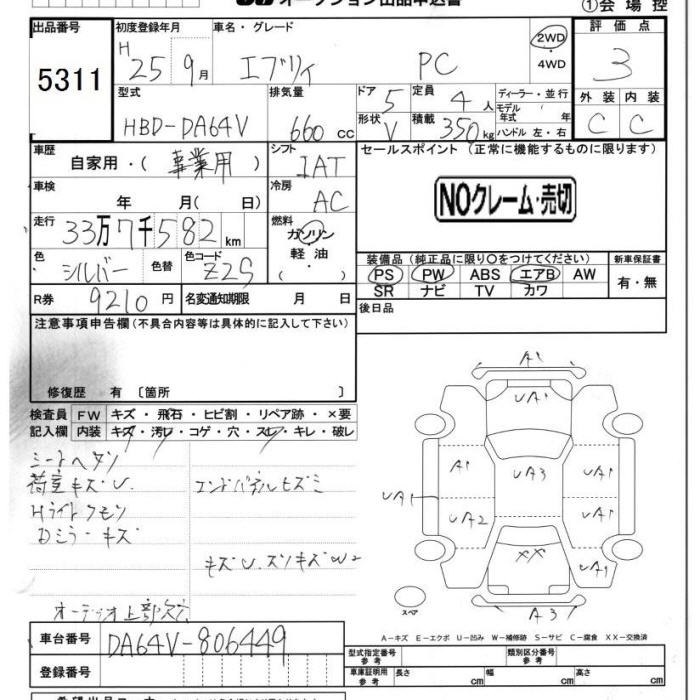 オークション出品申込書
①会場控
出品番号 初度登録年月 車名・グレード 評価点
5311 H 25年 9月 エブリィ PC 2WD 4WD 3
型式 排気量 ドア 5 定員 4人 ディーラー・並行 外装 内装
HBD-DA64V 660cc 形状 V 積載 350kg モデル年式 年 ハンドル 左・右 C C
車歴 自家用・(事業用) シフト IAT セールスポイント (正常に機能するものに限ります)
車検 年 月 ( 日) 冷房 AC NOクレーム・売切
走行 33万7千582km 燃料 ガソリン 軽油 ( )
色 シルバー 色替 色コード Z2S 装備品 (純正品に限り○をつけてください) 新車保証書
PS PW ABS エアB AW 有・無
SR ナビ TV カワ
R券 9210円 名変通知期限 月 日 後日品
注意事項申告欄(不具合内容等は具体的に記入して下さい)
修復歴 有 〔箇所 〕
検査員 FW キズ・飛石・ヒビ割・リペア跡・×要
記入欄 内装 キズ・汚レ・コゲ・穴・スレ・キレ・破レ
シートヘタリ
荷室キズU. エンドパネルヒズミ
Hライトクモリ
Dミラーキズ
キズU.ズソキズW2
オーディオ上部欠穴
A1
UA1
A1 UA3 UA1
UA1 UA2 UA1
XX UA1
スペア A3
A-キズ E-エクボ U-凹み W-補修跡 S-サビ C-腐食 XX-交換済
車台番号 DA64V-806449
型式指定番号 参考 類別区分番号 参考
登録番号 車庫証明用 参考 長さ cm 幅 cm 高さ cm